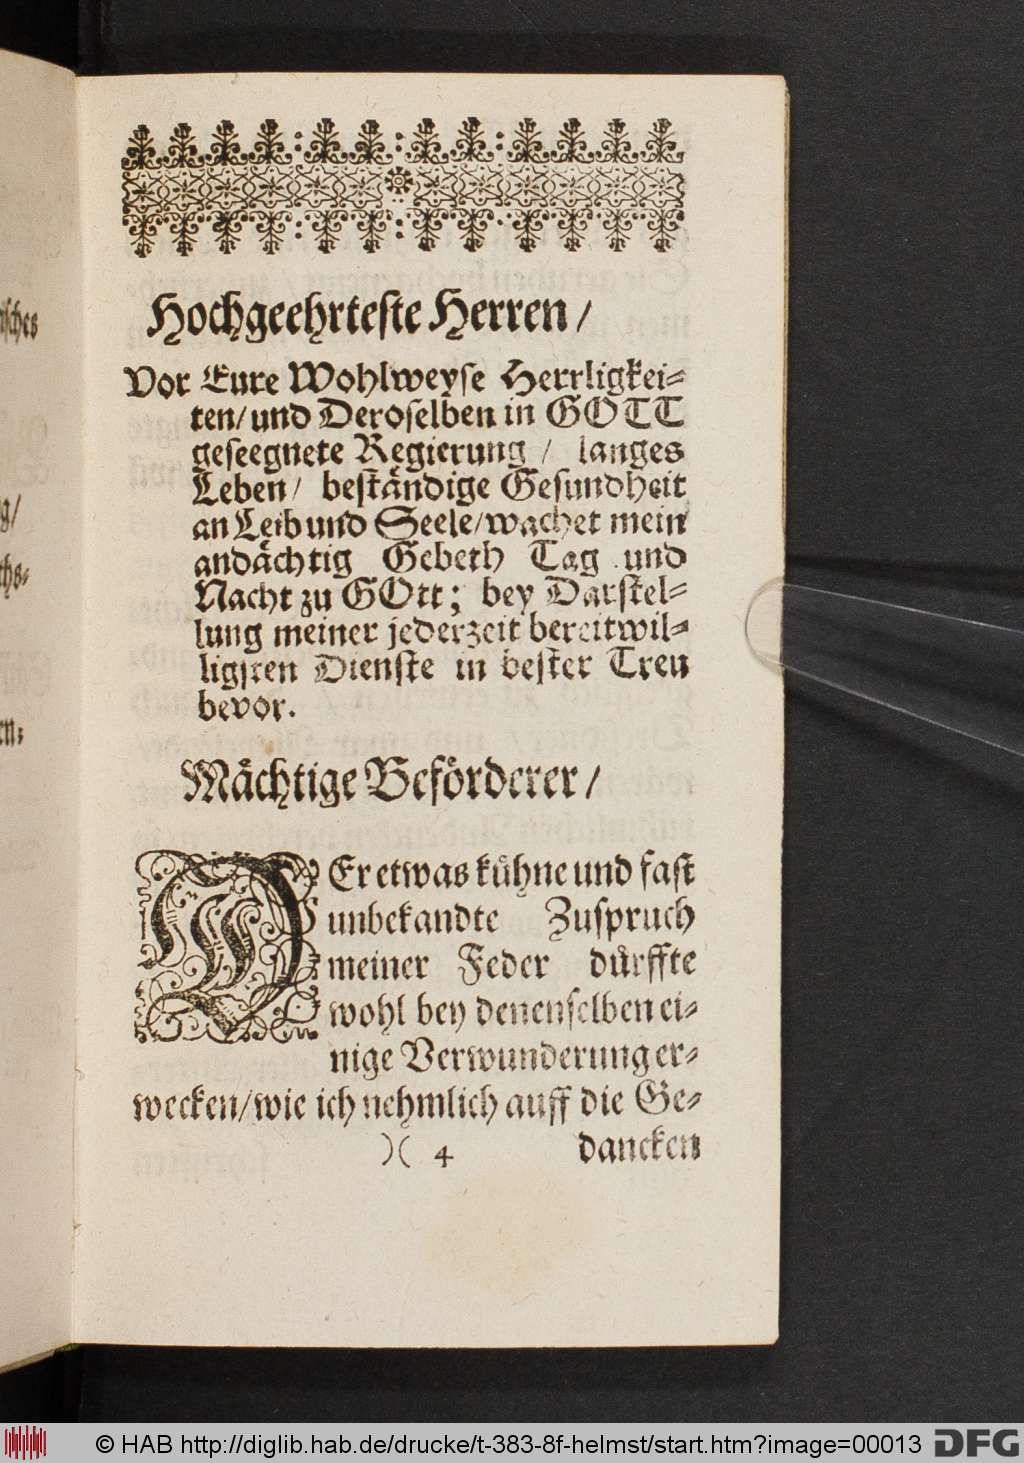 Hochgeehrteste Herren/
Vor Eure Wohlweyse Herrligkei-
ten/ und Deroselben in GOTT
geseegnete Regierung / langes
Leben/ beständige Gesundheit
an Leib und Seele/ wachet mein
andächtig Gebeth Tag und
Nacht zu GOtt; bey Darstel-
lung meiner jederzeit bereitwil-
ligsten Dienste in bester Treu
bevor.
Mächtige Beförderer/
WEr etwas kühne und fast
unbekandte Zuspruch
meiner Feder dürffte
wohl bey denenselben ei-
nige Verwunderung er-
wecken/ wie ich nehmlich auff die Ge-
)( 4 dancken
© HAB http://diglib.hab.de/drucke/t-383-8f-helmst/start.htm?image=00013 DFG